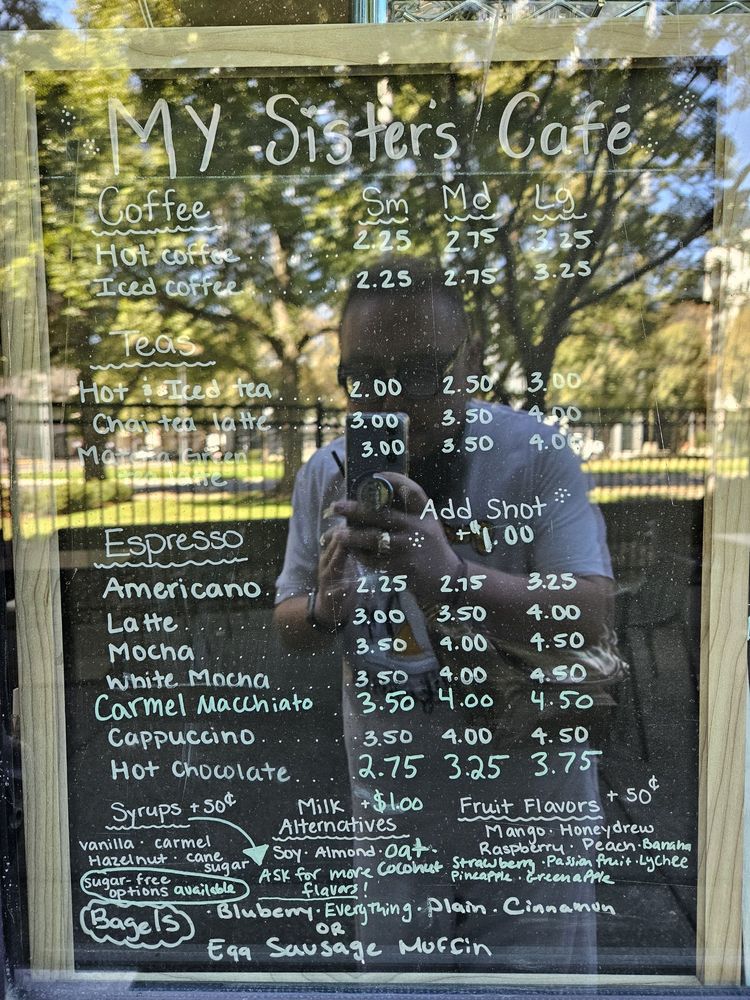 My Sister's Café
Coffee Sm Md Lg
Hot coffee 2.25 2.75 3.25
Iced coffee 2.25 2.75 3.25
Teas
Hot & Iced tea 2.00 2.50 3.00
Chai tea latte 3.00 3.50 4.00
Matcha Green 3.00 3.50 4.00
tea latte
Add Shot
Espresso +$1.00
Americano 2.25 2.75 3.25
Latte 3.00 3.50 4.00
Mocha 3.50 4.00 4.50
White Mocha 3.50 4.00 4.50
Carmel Macchiato 3.50 4.00 4.50
Cappuccino 3.50 4.00 4.50
Hot Chocolate 2.75 3.25 3.75
Syrups +50¢
vanilla · carmel
Hazelnut · cane
sugar
Sugar-free
options available
Milk +$1.00
Alternatives
Soy · Almond · Oat ·
Ask for more Coconut
flavors!
Fruit Flavors +50¢
Mango · Honeydrew
Raspberry · Peach · Banana
Strawberry · Passion fruit · Lychee
Pineapple · Green apple
Bagels · Bluberry · Everything · Plain · Cinnamon
OR
Egg Sausage Muffin